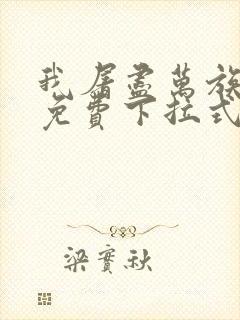 我屠盡萬族
免費下拉式
梁實秋